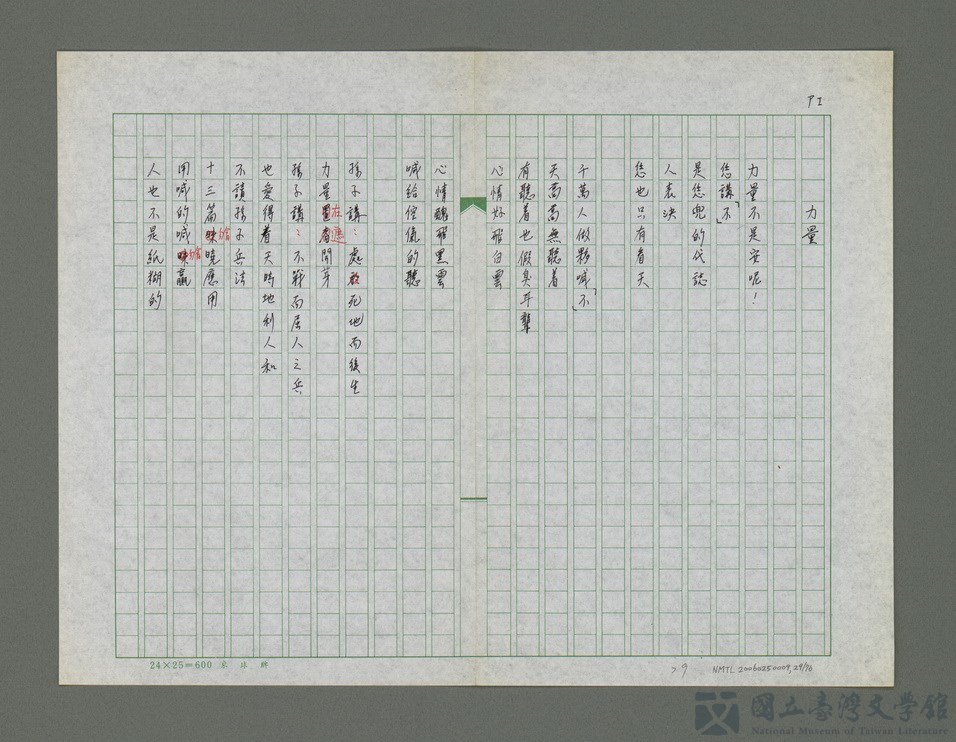 PI
力量
力量不是安呢！
恁講「不」
是恁兜的代誌
人表決
恁也只有看天
千萬人做夥喊「不」
天高高無聽着
有聽着也假臭耳聾
心情好飛白雲
心情醜飛黑雲
喊給倥傯的聽
孫子講：處死地而後生
力量在應開芽
孫子講：不戰而屈人之兵
也愛得着天時地利人和
不讀孫子兵法
十三篇 曉應用
用喊的喊 贏
人也不是紙糊的
24×25=600
29
NMTL 20060250009,29/76
國立臺灣文學館
National Museum of Taiwan Literature